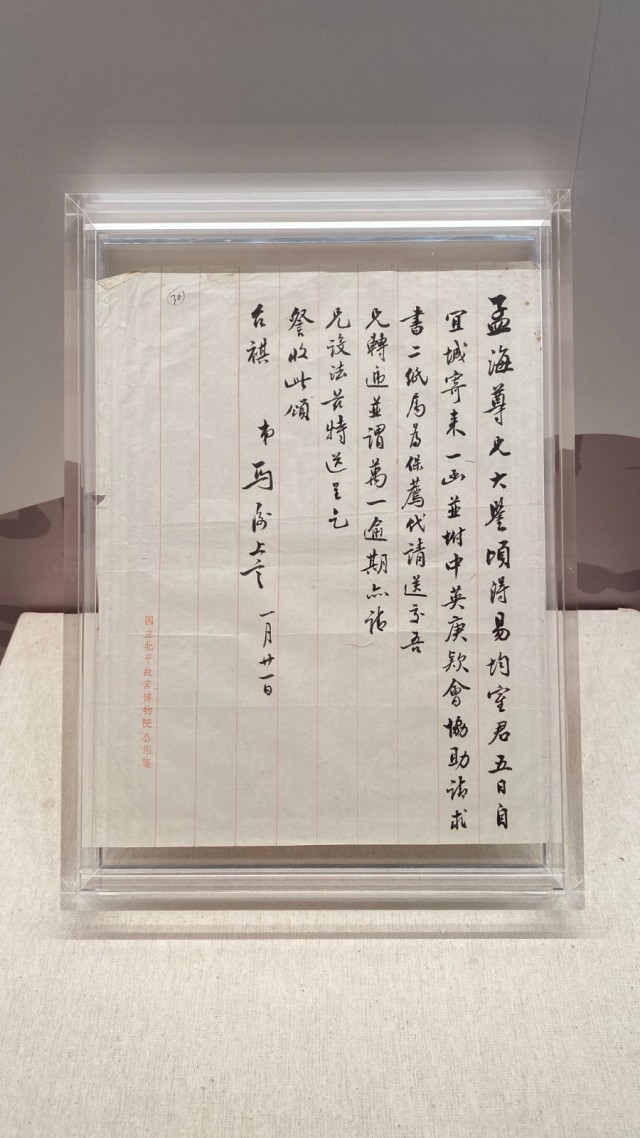 孟海尊兄大鑒頃得易均室君五日自
宜城寄來一函並坿中英庚款會協助請求
書二紙屬為保薦代請送交吾
兄轉遞並謂萬一逾期亦請
兄設法茲特送呈乞
詧收此頌
台祺
弟馬衡上言 一月廿一日
國立北平故宮博物院公用箋